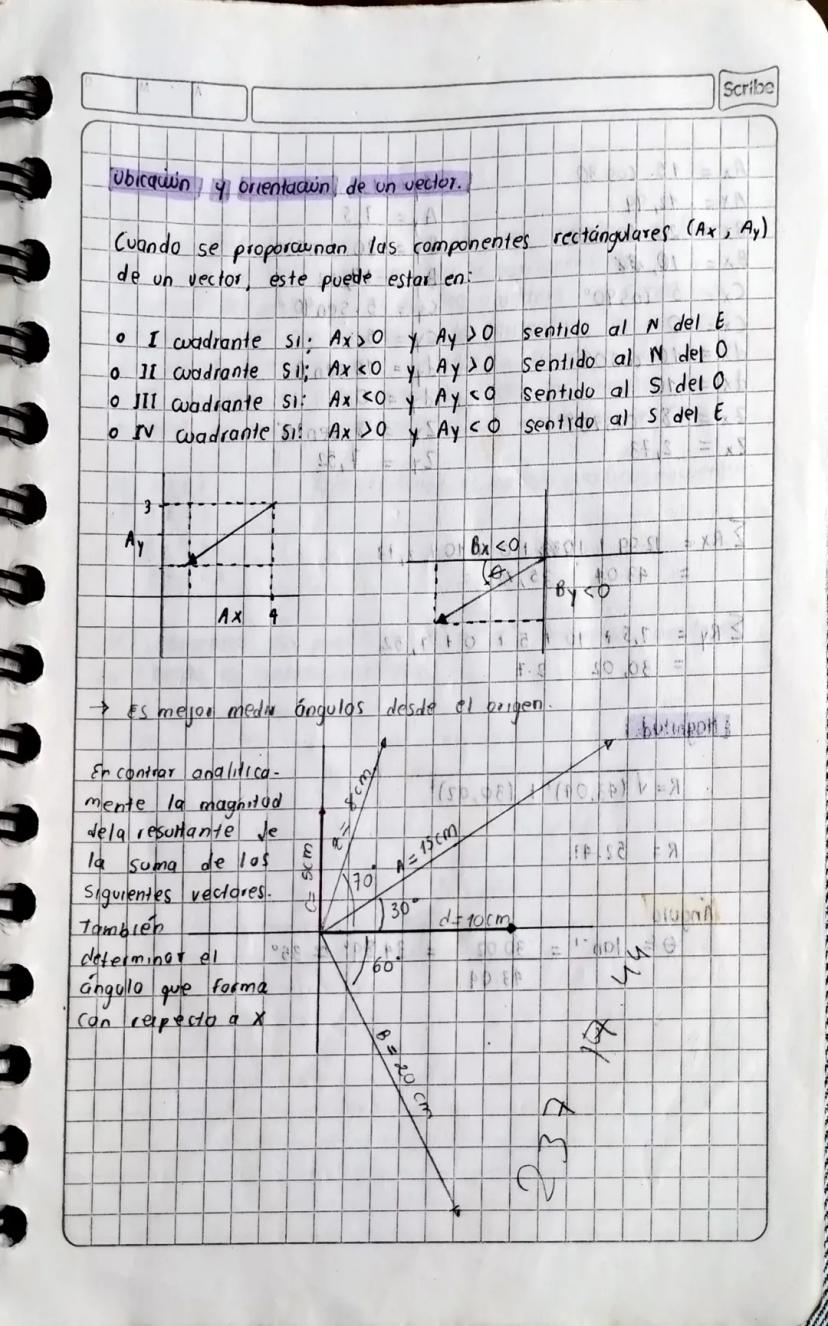 Scribe
Ubicación y orientación de un vector.
Cuando se proporcionan las componentes rectángulares (Ax, Ay)
de un vector, este puede estar en:
o I cuadrante si: Ax>0 y Ay>0 sentido al N del E
o II cuadrante si: Ax<0 y Ay>0 sentido al N del O
o III cuadrante si: Ax<0 y Ay<0 sentido al S del O
o IV cuadrante si: Ax>0 y Ay<0 sentido al S del E
3
Ay
Ax 4
Bx<0
θ
By<0
→ Es mejor medir ángulos desde el origen.
Encontrar analitica-
mente la magnitud
dela resultante de
la suma de los
siguientes vectores.
También
determinar el
ángulo que forma
con respecto a x
C= 5cm
= 8cm
A=15cm
70°
30°
d=10cm
60°
B= 20 cm
237
44